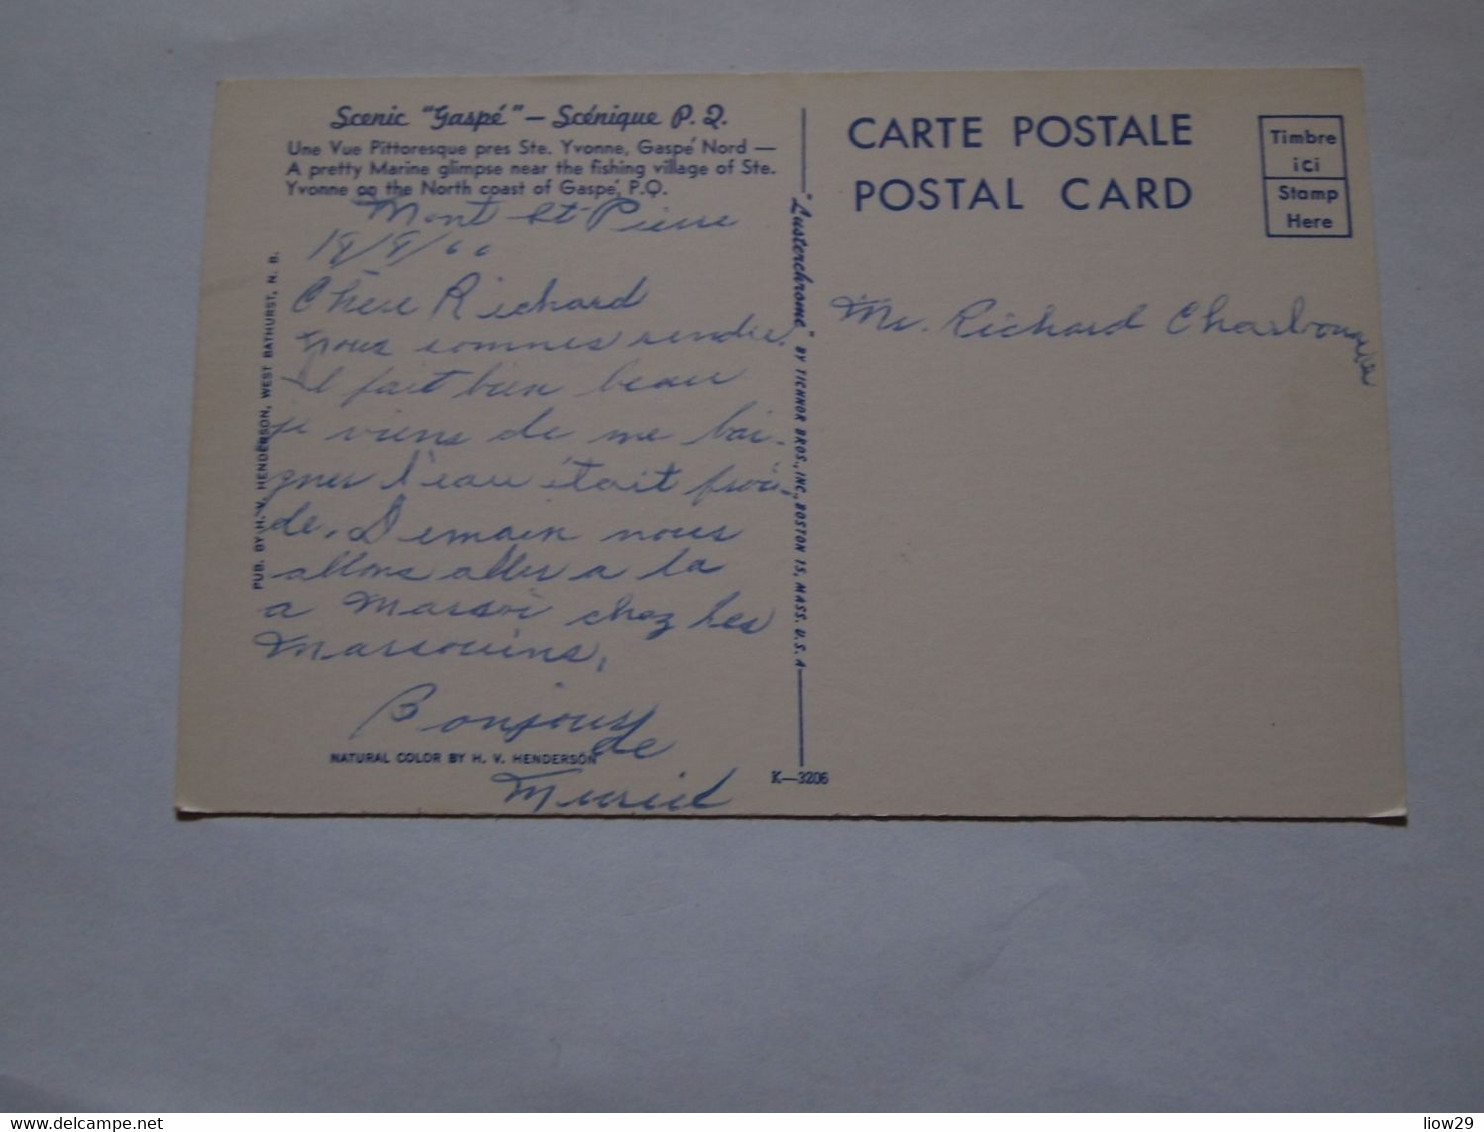 Scenic "Gaspé" — Scénique P. Q.
Une Vue Pittoresque pres Ste. Yvonne, Gaspé Nord —
A pretty Marine glimpse near the fishing village of Ste.
Yvonne on the North coast of Gaspé, P.Q.
Mont St-Pierre
Chère Richard
nous sommes rendu.
il fait bien beau
je viens de me bai-
gner l'eau était froi-
de. Demain nous
allons aller a la
a Marsoi chez les
Marsouins.
Bonjour
de
Muriel
NATURAL COLOR BY H. V. HENDERSON
K—3206
PUB. BY H. V. HENDERSON, WEST BATHURST, N. B.
"Lusterchrome" BY TICHNOR BROS., INC., BOSTON 15, MASS. U. S. A
CARTE POSTALE
POSTAL CARD
Timbre
ici
Stamp
Here
Mr. Richard Charbonneau
delcampe.net
liow29